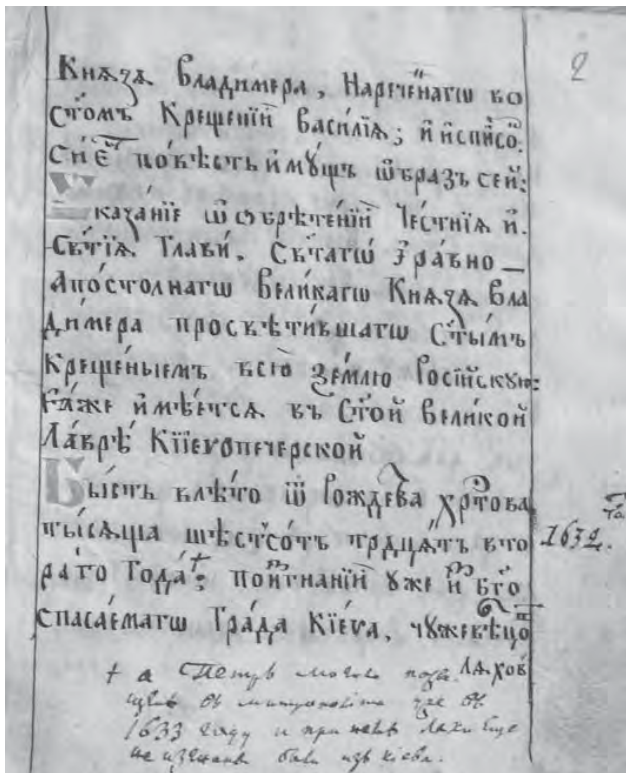 2
Кнѧзѧ Владимера, Нареченагѡ во
С҃томъ Крещенїй Василїѧ; и҆ и҆списо:
Сиє повѣсть и҆мꙋщъ ѡ҆бразъ сей:
Сказанїе ѡ҆ ѡбрѣтенїй Честнїѧ и҆
Ст҃їѧ Главы. Ст҃агѡ і҆ равно
Апостолнагѡ Великагѡ Кнѧзѧ Вла
димера просвѣтившагѡ Ст҃ымъ
Крещеныемъ всю Землю Росїйскую:
Еѧже и҆мѣетсѧ въ Ст҃ой великой
Лаврѣ Кїевопечерской
Бысть влѣто ѿ Рождева Хр҃това
тысѧща шестсотъ трдцѧтъ вто 1632.
рагѡ Года: † поизгнанїй уже из бг҃о
спасаемагѡ Града Кїева, чужевѣцо
лѧховъ
† а Петръ Могила
въ митрополита уже въ
1633 году и при немъ Лахи еще
не изгнани были изъ Кіева.